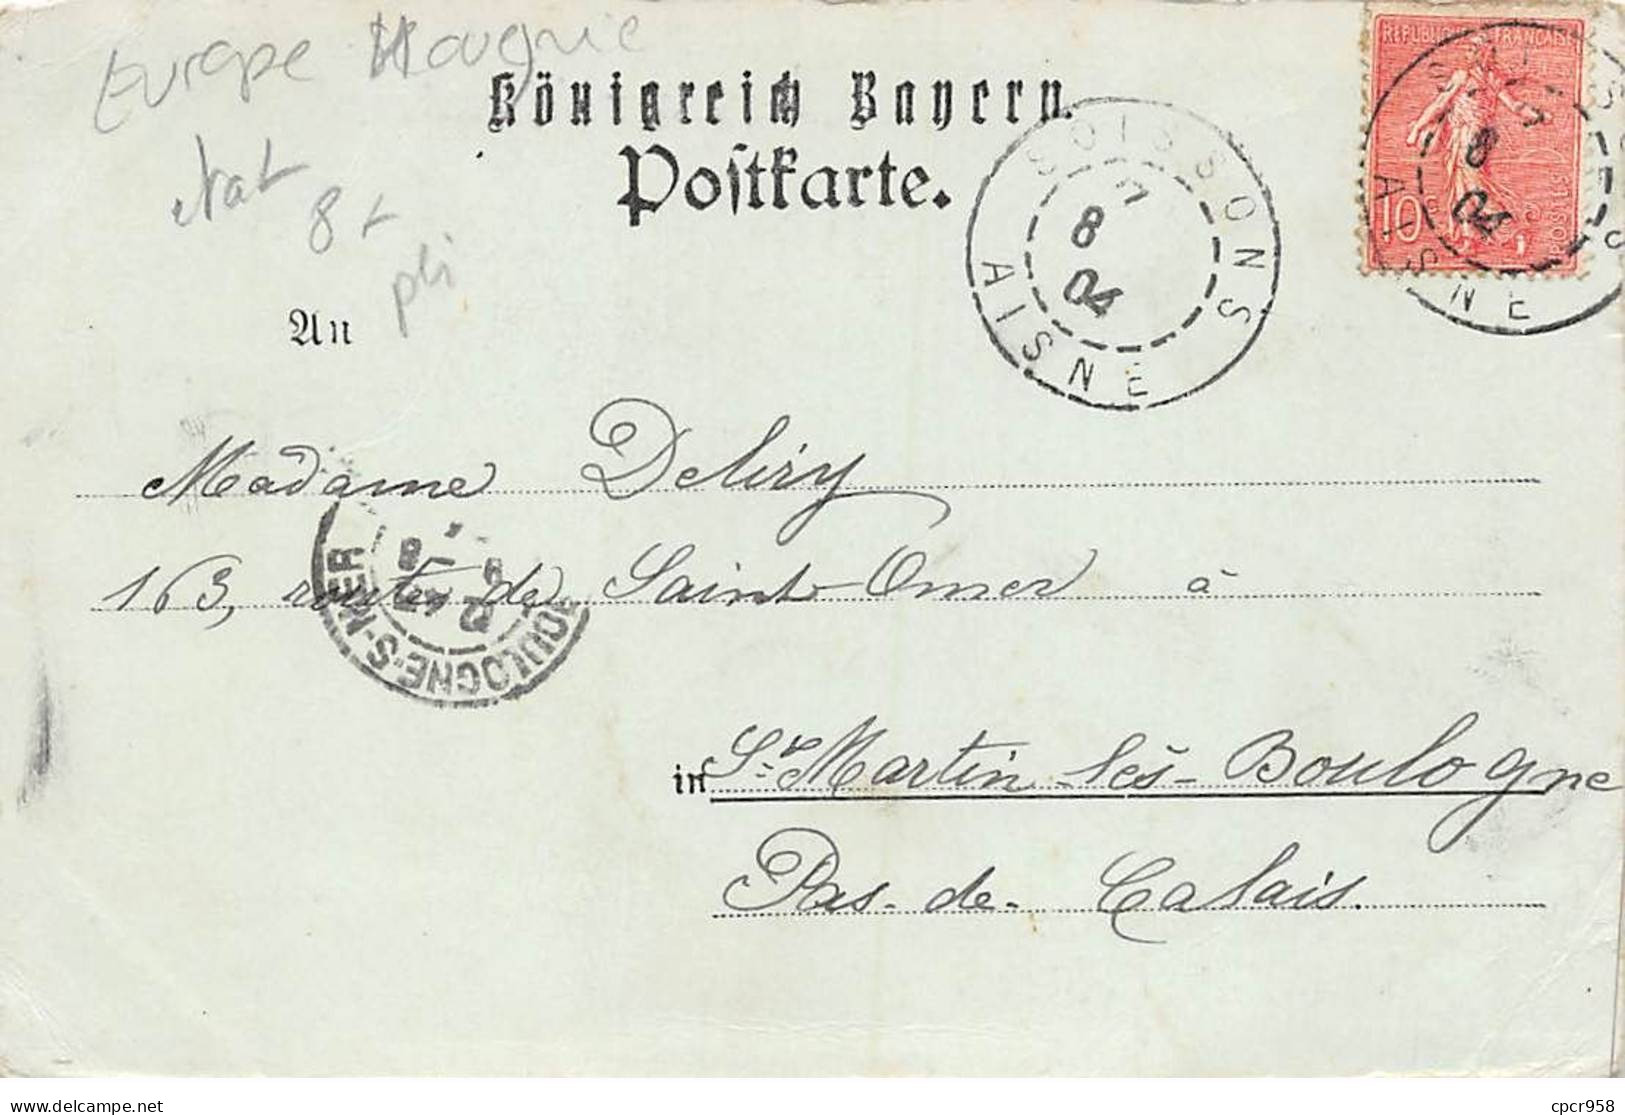 Europe Hongrie
Königreich Bayern.
Postkarte.
8+
pli
An
RÉPUBLIQUE FRANÇAISE
10c
POSTES
SOISSONS
7
8
04
AISNE
8
04
AISNE
Madame Deliry
163, route de Saint-Omer à
BOULOGNE-S-MER
8
04
in St Martin-lès-Boulogne
Pas-de-Calais.
cpcr958